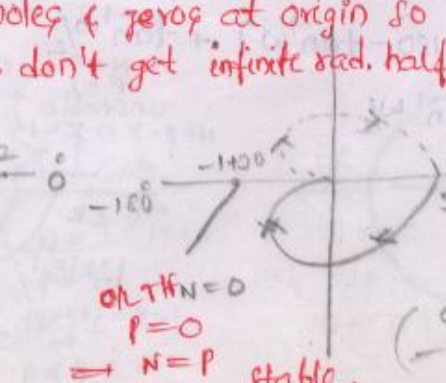 poles & zeros at origin so
don't get infinite rad. half
0°
-180°
-1+j0
N=0
P=0
⇒ N=P
stable.